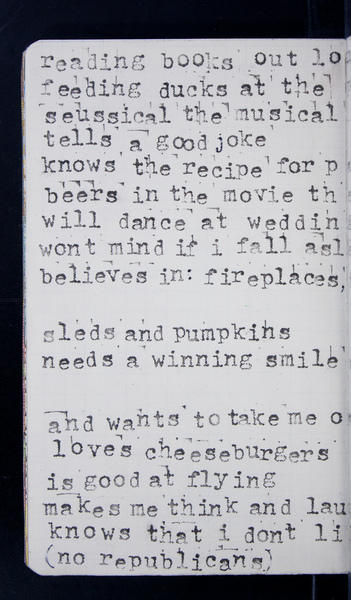 reading books out lo
feeding ducks at the
seussical the musical
tells a good joke
knows the recipe for p
beers in the movie th
will dance at weddin
wont mind if i fall asl
believes in: fireplaces,
sleds and pumpkins
needs a winning smile
and wants to take me o
loves cheeseburgers
is good at flying
makes me think and lau
knows that i dont li
(no republicans)